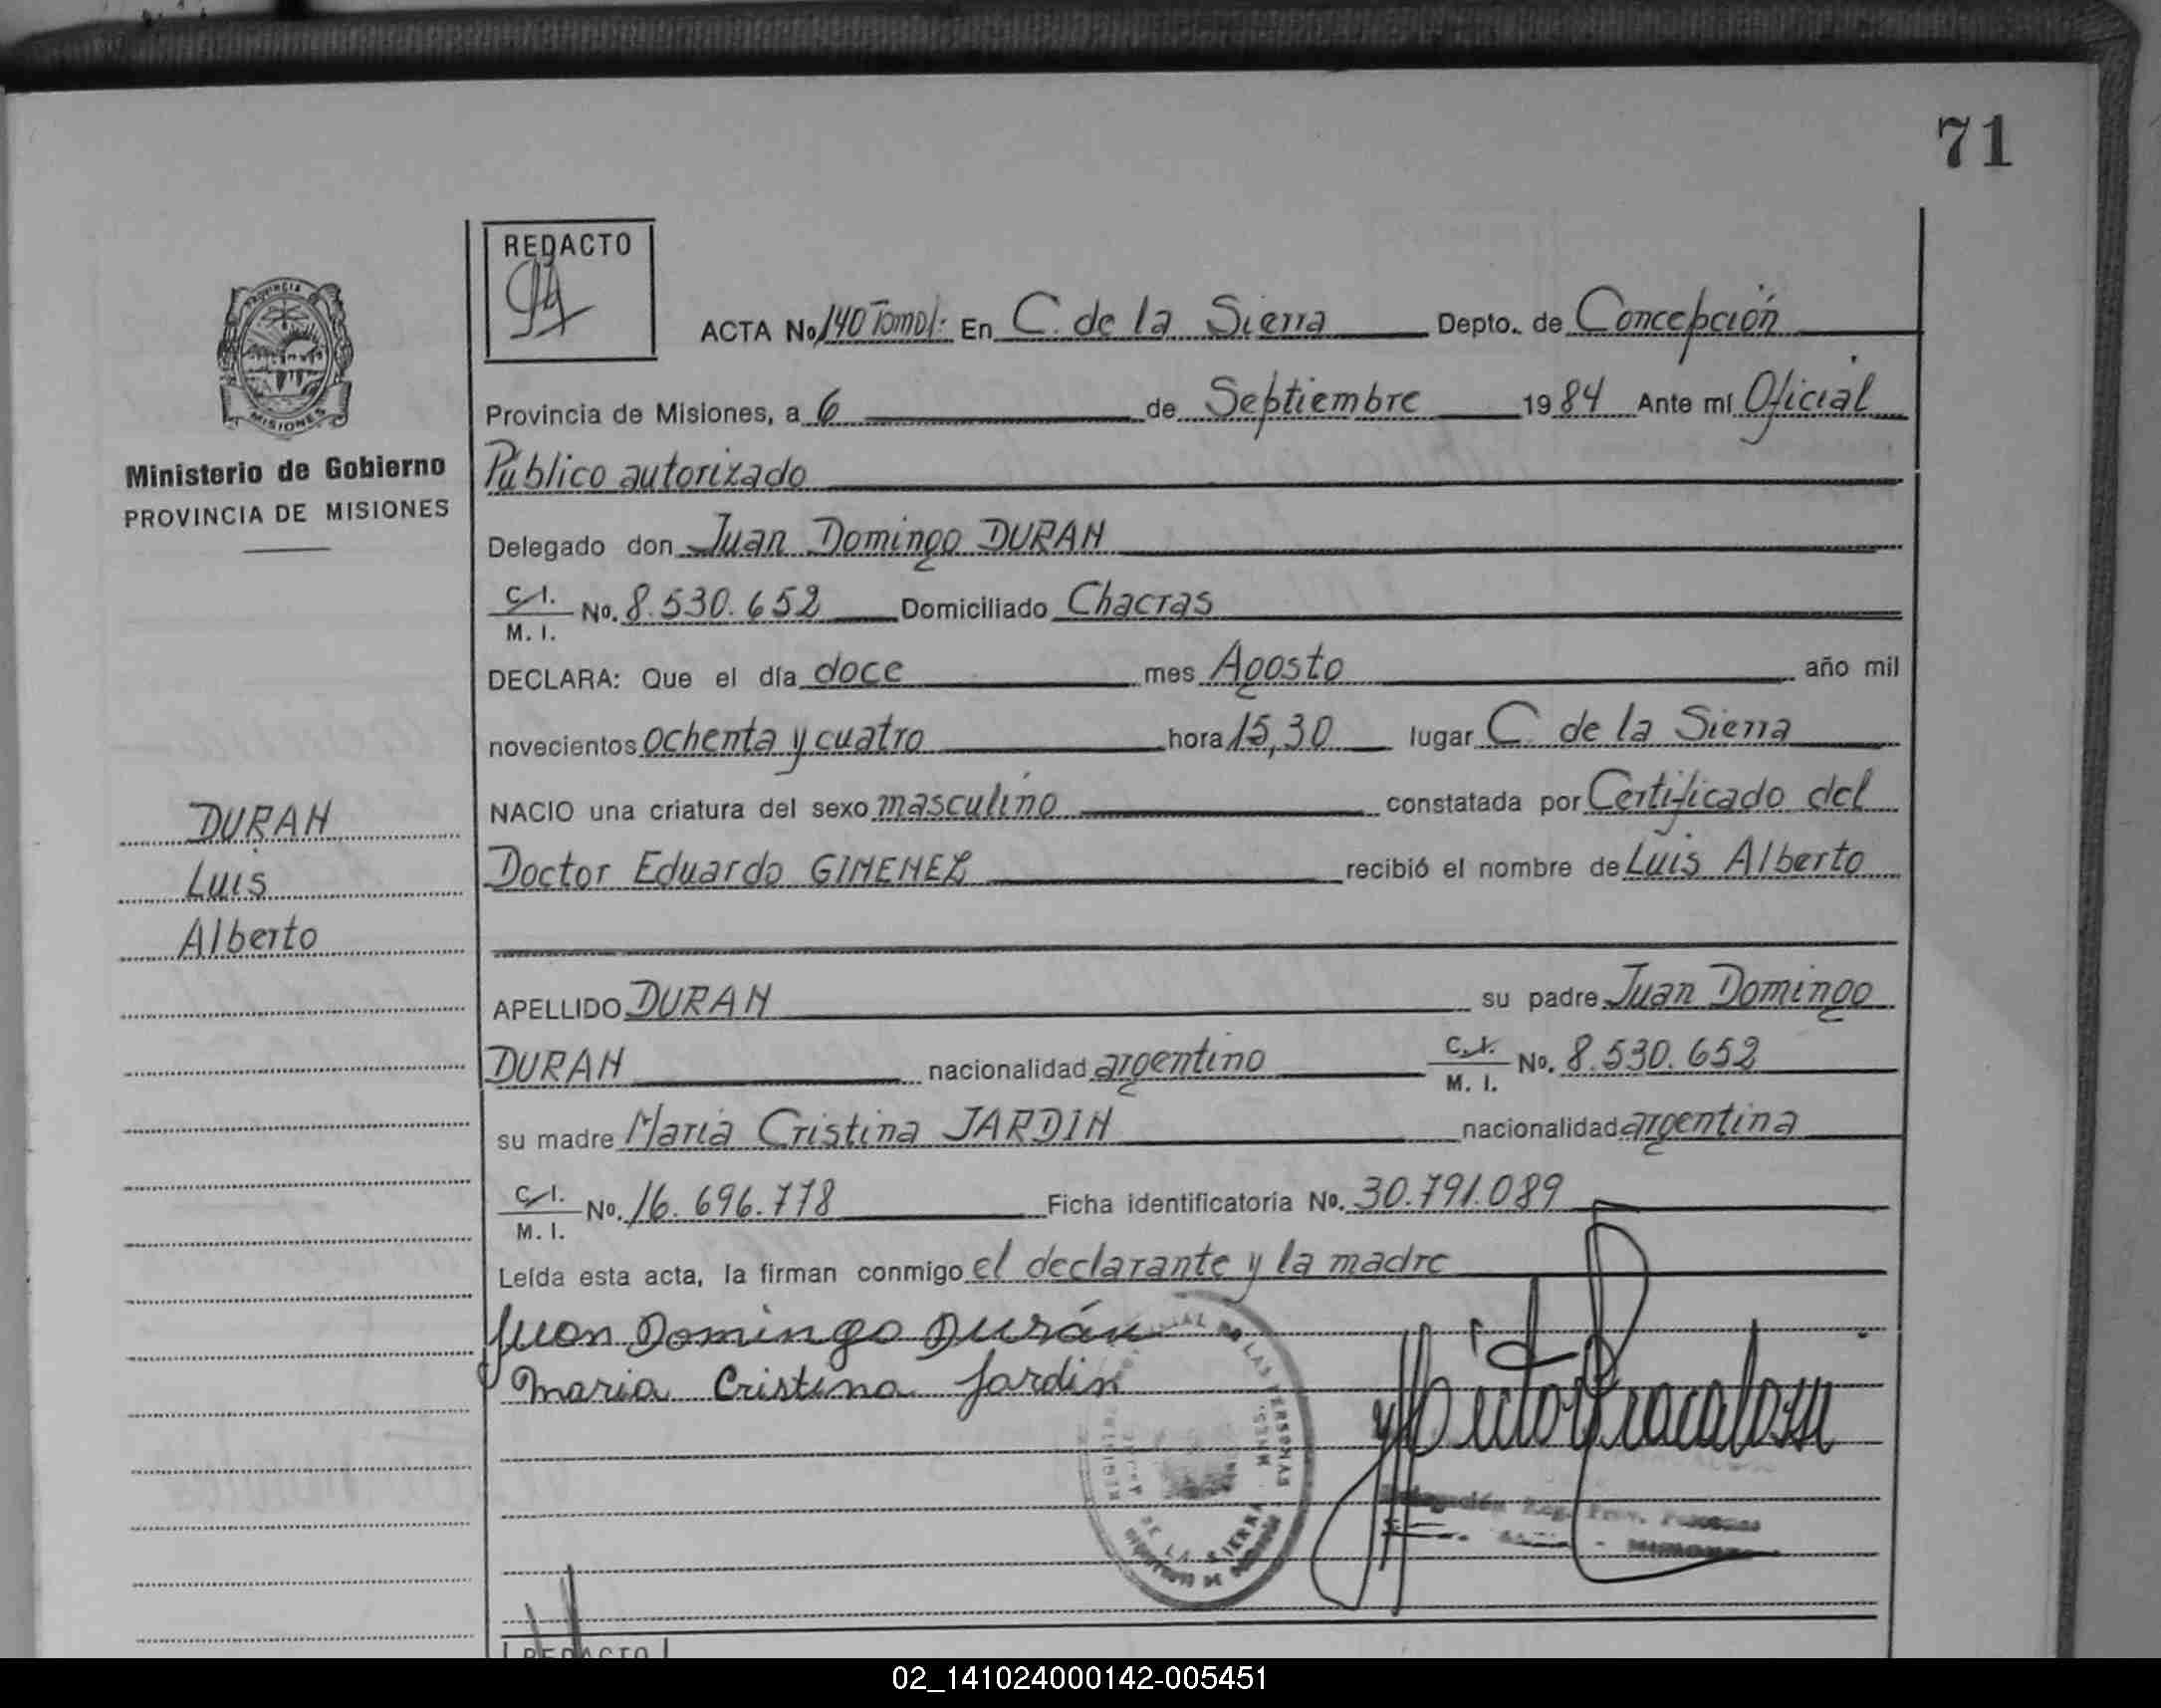 71
REDACTO
ACTA No 140 Tomo I. En C. de la Sierra Depto. de Concepción
Provincia de Misiones, a 6 de Septiembre 1984 Ante mí Oficial
Público autorizado
Delegado don Juan Domingo DURAN
C.I. M.I. No. 8.530.652 Domiciliado Chacras
DECLARA: Que el día doce mes Agosto año mil
novecientos ochenta y cuatro hora 15,30 lugar C. de la Sierra
NACIO una criatura del sexo masculino constatada por Certificado del
Doctor Eduardo GIMENEZ recibió el nombre de Luis Alberto
APELLIDO DURAN su padre Juan Domingo
DURAN nacionalidad argentino C.I. M.I. No. 8.530.652
su madre María Cristina JARDIN nacionalidad argentina
C.I. M.I. No. 16.696.778 Ficha identificatoria No. 30.791.089
Leída esta acta, la firman conmigo el declarante y la madre
Juan Domingo Durán
Maria Cristina Jardin
PROVINCIA
MISIONES
Ministerio de Gobierno
PROVINCIA DE MISIONES
DURAN
Luis
Alberto
DE LAS PERSONAS
DE LA SIERRA
REDACTO
02_141024000142-005451